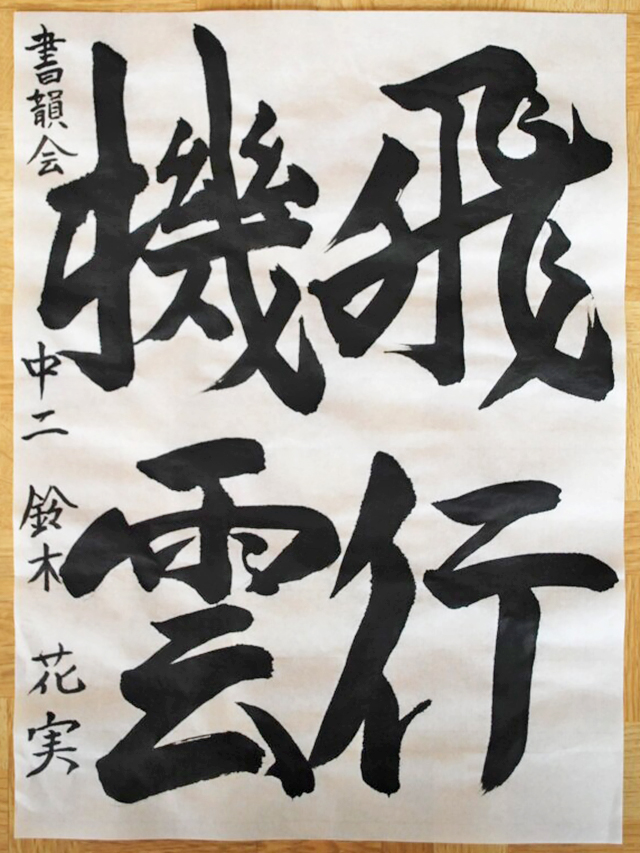 飛行
機雲
書韻会 中二 鈴木 花実